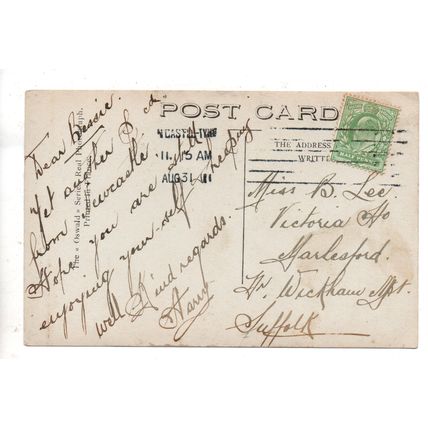 POST CARD
The « Oswald » Series Real Photograph.
Printed in
THE ADDRESS
WRITTE
11.15 AM
AUG 31
Dear Bessie.
Yet another P. cd
from Newcastle
Hope you are still
enjoying your-self & keeping
well. Kind regards.
Harry
Miss B. Lee.
Victoria Ho
Marlesford.
Nr. Wickham Mkt.
Suffolk